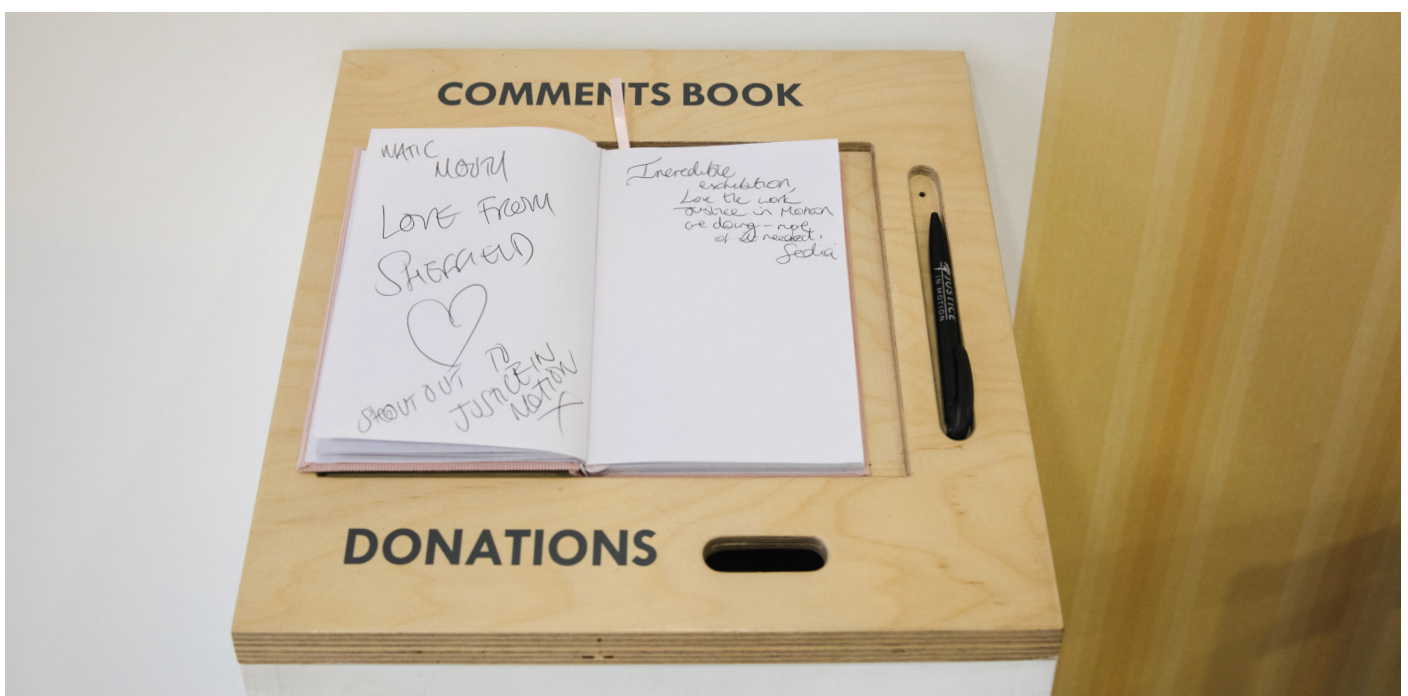 COMMENTS BOOK
NATIC
MOUTH
LOVE FROM
SHEFFIELD
SHOUT OUT TO
JUSTICE IN
MOTION
X
Incredible
exhibition,
Love the work
Justice in Motion
are doing – more
of it needed.
JUSTICE
IN MOTION
DONATIONS